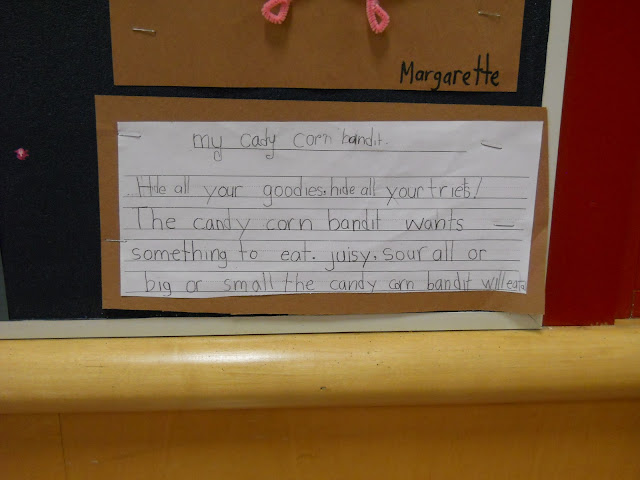 Margarette
my cady corn bandit.
Hide all your goodies, hide all your triets!
The candy corn bandit wants
something to eat. juisy, sour all or
big or small the candy corn bandit will eat